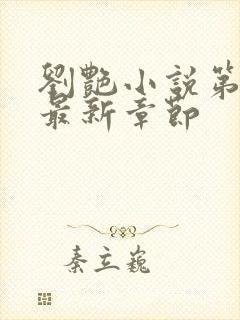 劉艷小説第
最新章節
秦立巍